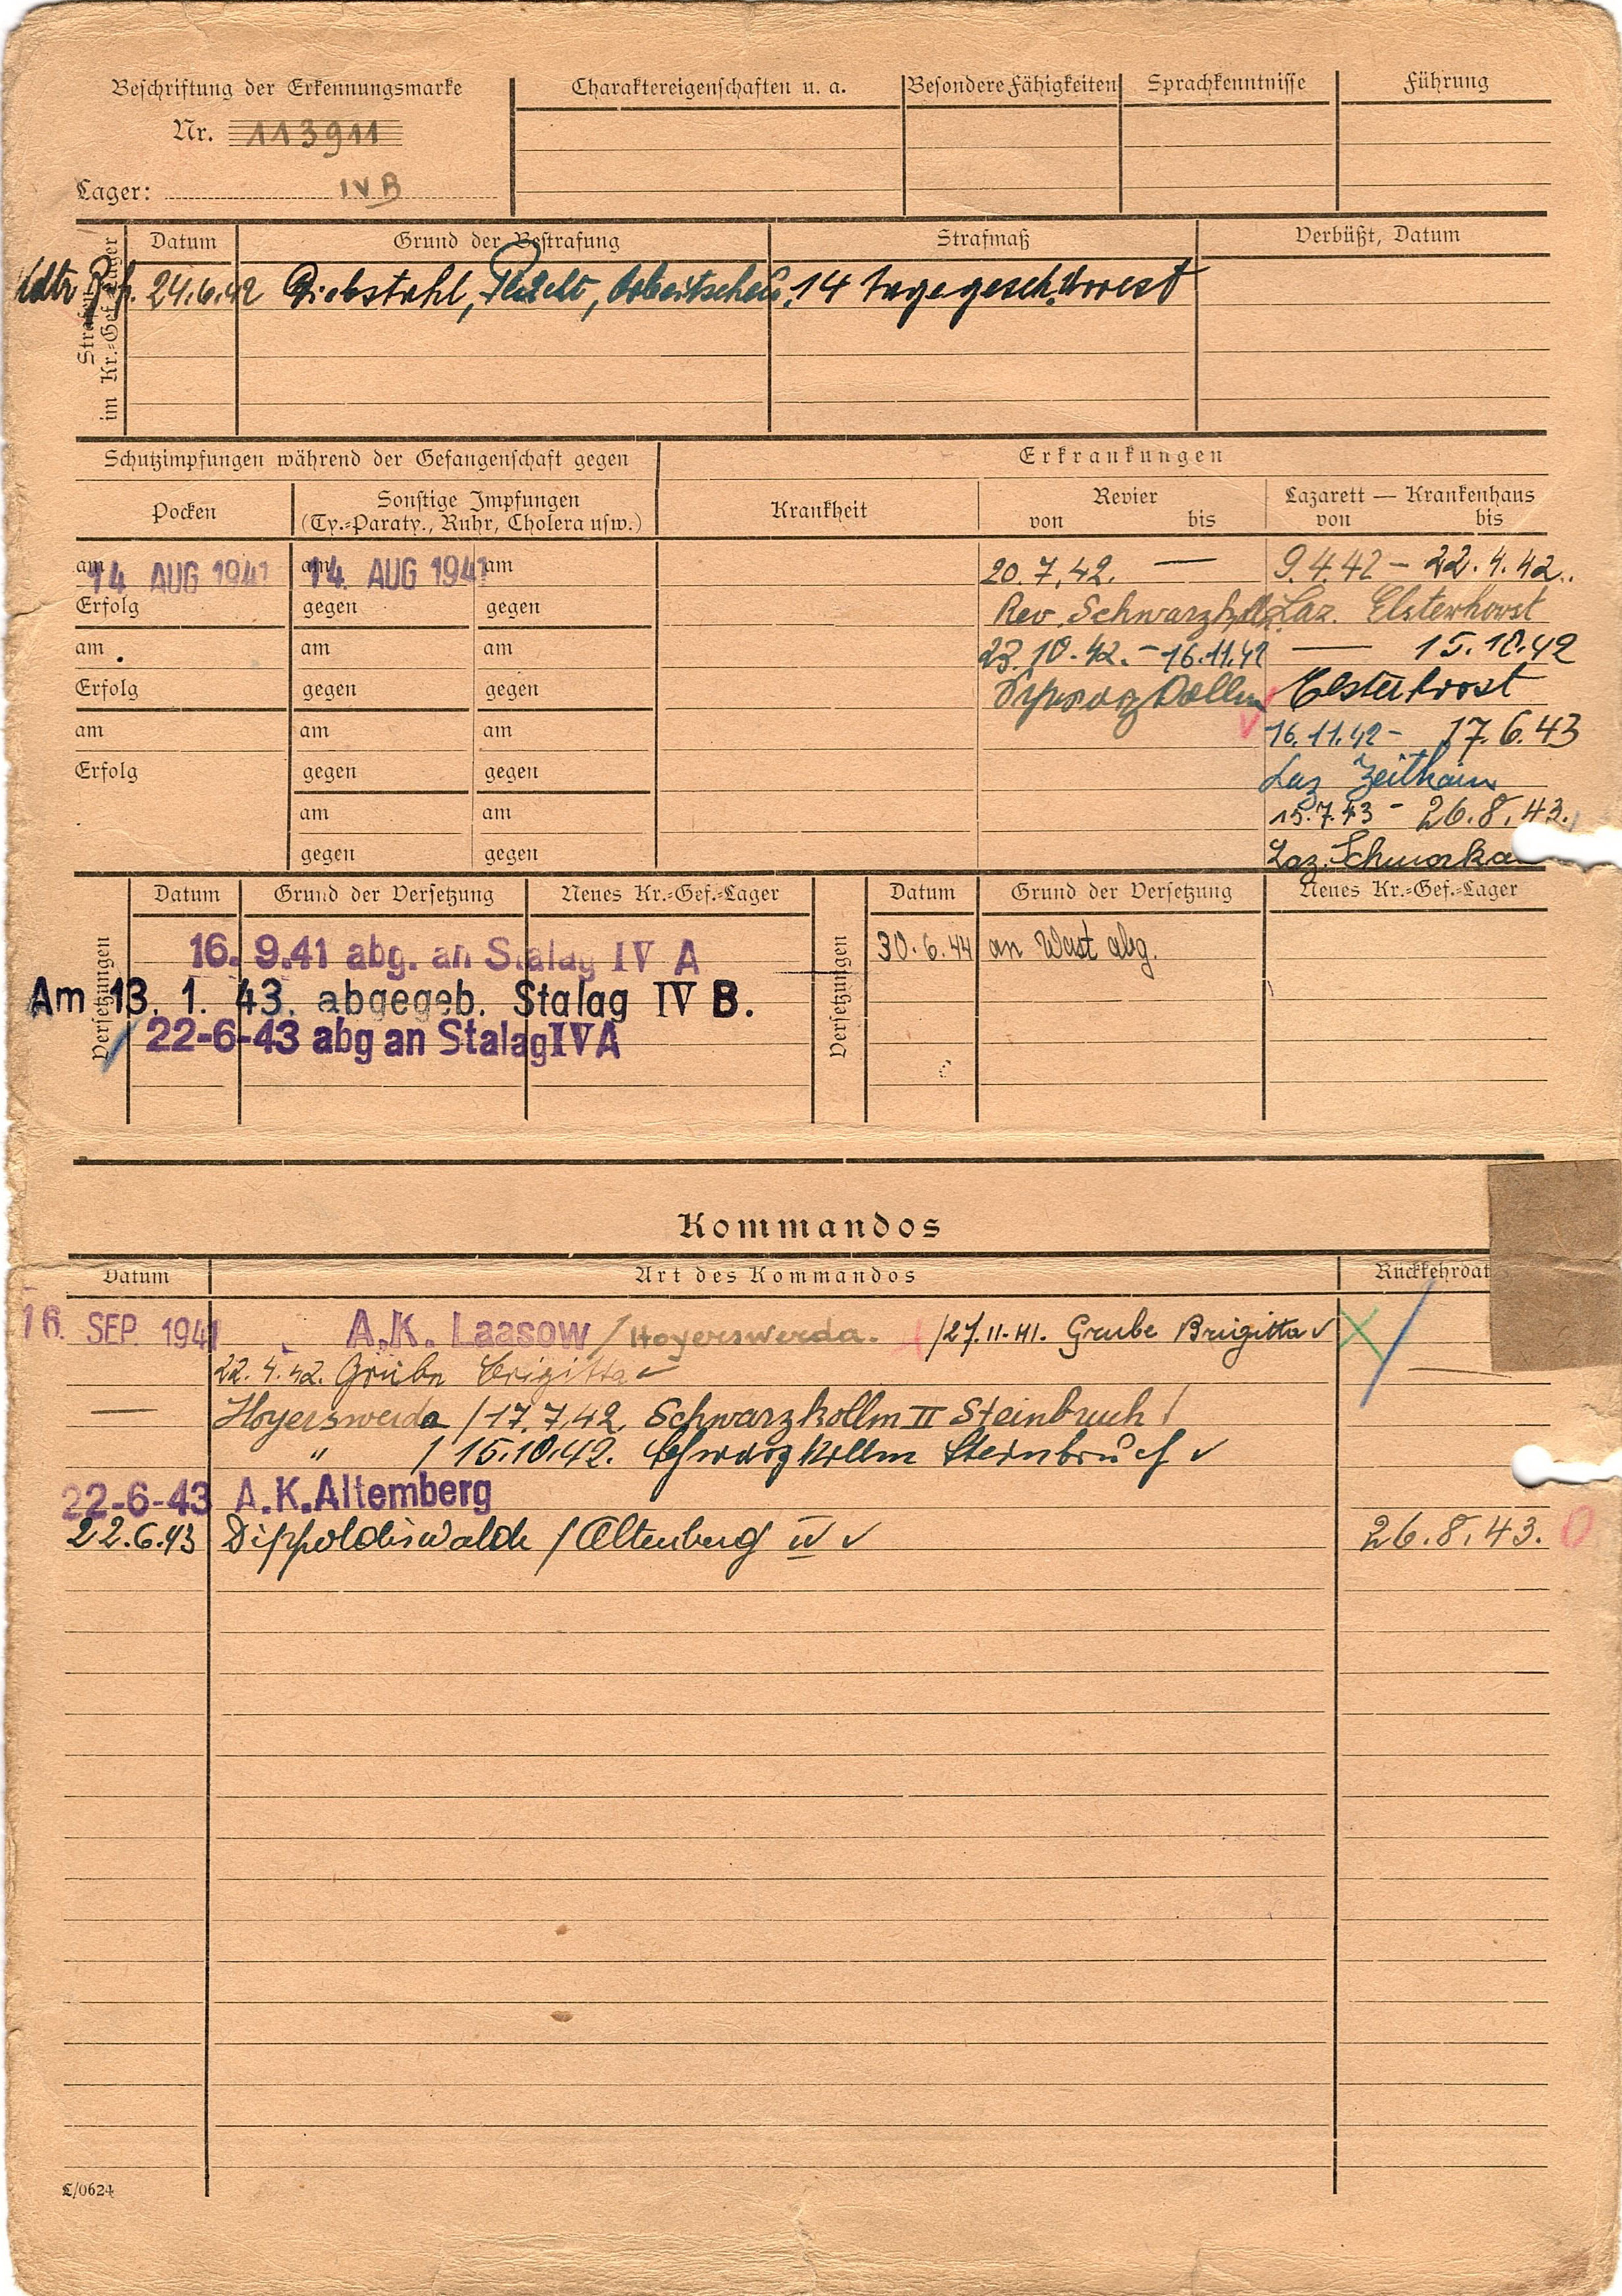 Beschriftung der Erkennungsmarke
Nr. 113911
Lager: IV B
Charaktereigenschaften u. a.
Besondere Fähigkeiten
Sprachkenntnisse
Führung
im Kr.-Gef.-Lager
Datum
Grund der Bestrafung
Strafmaß
Verbüßt, Datum
24.6.42 Diebstahl, Flucht, Arbeitscheu, 14 Tage gesch. Arrest
Schutzimpfungen während der Gefangenschaft gegen
Erkrankungen
Pocken
Sonstige Impfungen
(Ty.-Paraty., Ruhr, Cholera usw.)
Krankheit
Revier
von bis
Lazarett — Krankenhaus
von bis
am 14 AUG 1941 am 14. AUG 1941 am
20. 7. 42. — 9.4.42 – 22.4.42.
Erfolg gegen gegen
Rev. Schwarzkollm Laz. Elsterhorst
am am am
23.10.42. – 16.11.42 — 15.10.42
Erfolg gegen gegen
Schwarzkollm Elsterhorst
am am am
16.11.42 – 17.6.43
Erfolg gegen gegen
Laz Zeithain
am am
15.7.43 – 26.8.43.
gegen gegen
Laz.
Versetzungen
Datum
Grund der Versetzung
Neues Kr.-Gef.-Lager
16. 9.41 abg. an Stalag IV A
Am 13. 1. 43. abgegeb. Stalag IV B.
22-6-43 abg an Stalag IV A
Versetzungen
Datum
Grund der Versetzung
Neues Kr.-Gef.-Lager
30.6.44 an West abg.
Kommandos
Datum
Art des Kommandos
Rückkehrdat
16. SEP. 1941 A.K. Laasow / Hoyerswerda. /27.11.41. Grube Brigitta ✓
22.4.42. Grube Brigitta ✓
— Hoyerswerda /17.7.42. Schwarzkollm II Steinbruch /
" / 15.10.42. Schwarzkollm Steinbruch ✓
22-6-43 A.K.Altemberg
22.6.43 Dippoldiswalde / Altenberg IV ✓ 26.8.43. 0
L/0624